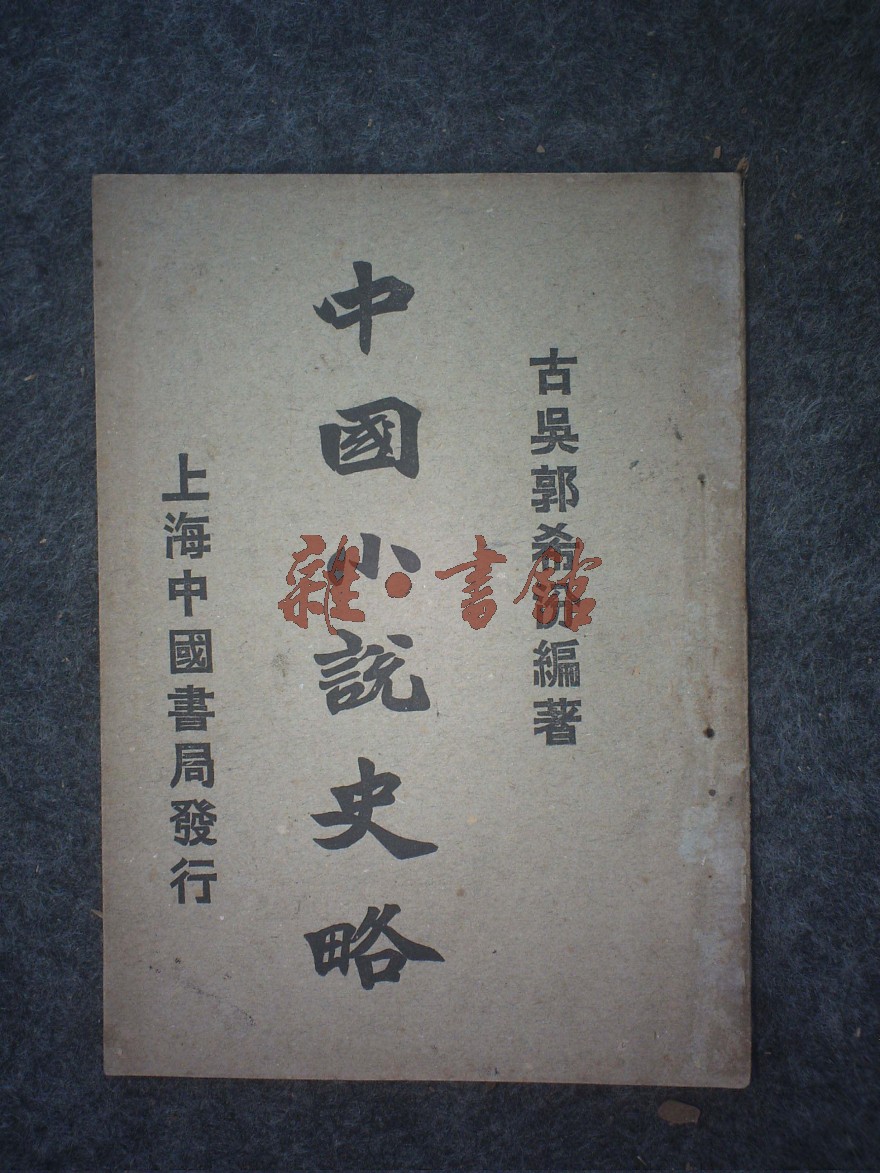 古吳郭希汾編著
中國小說史略
上海中國書局發行
雜·書館